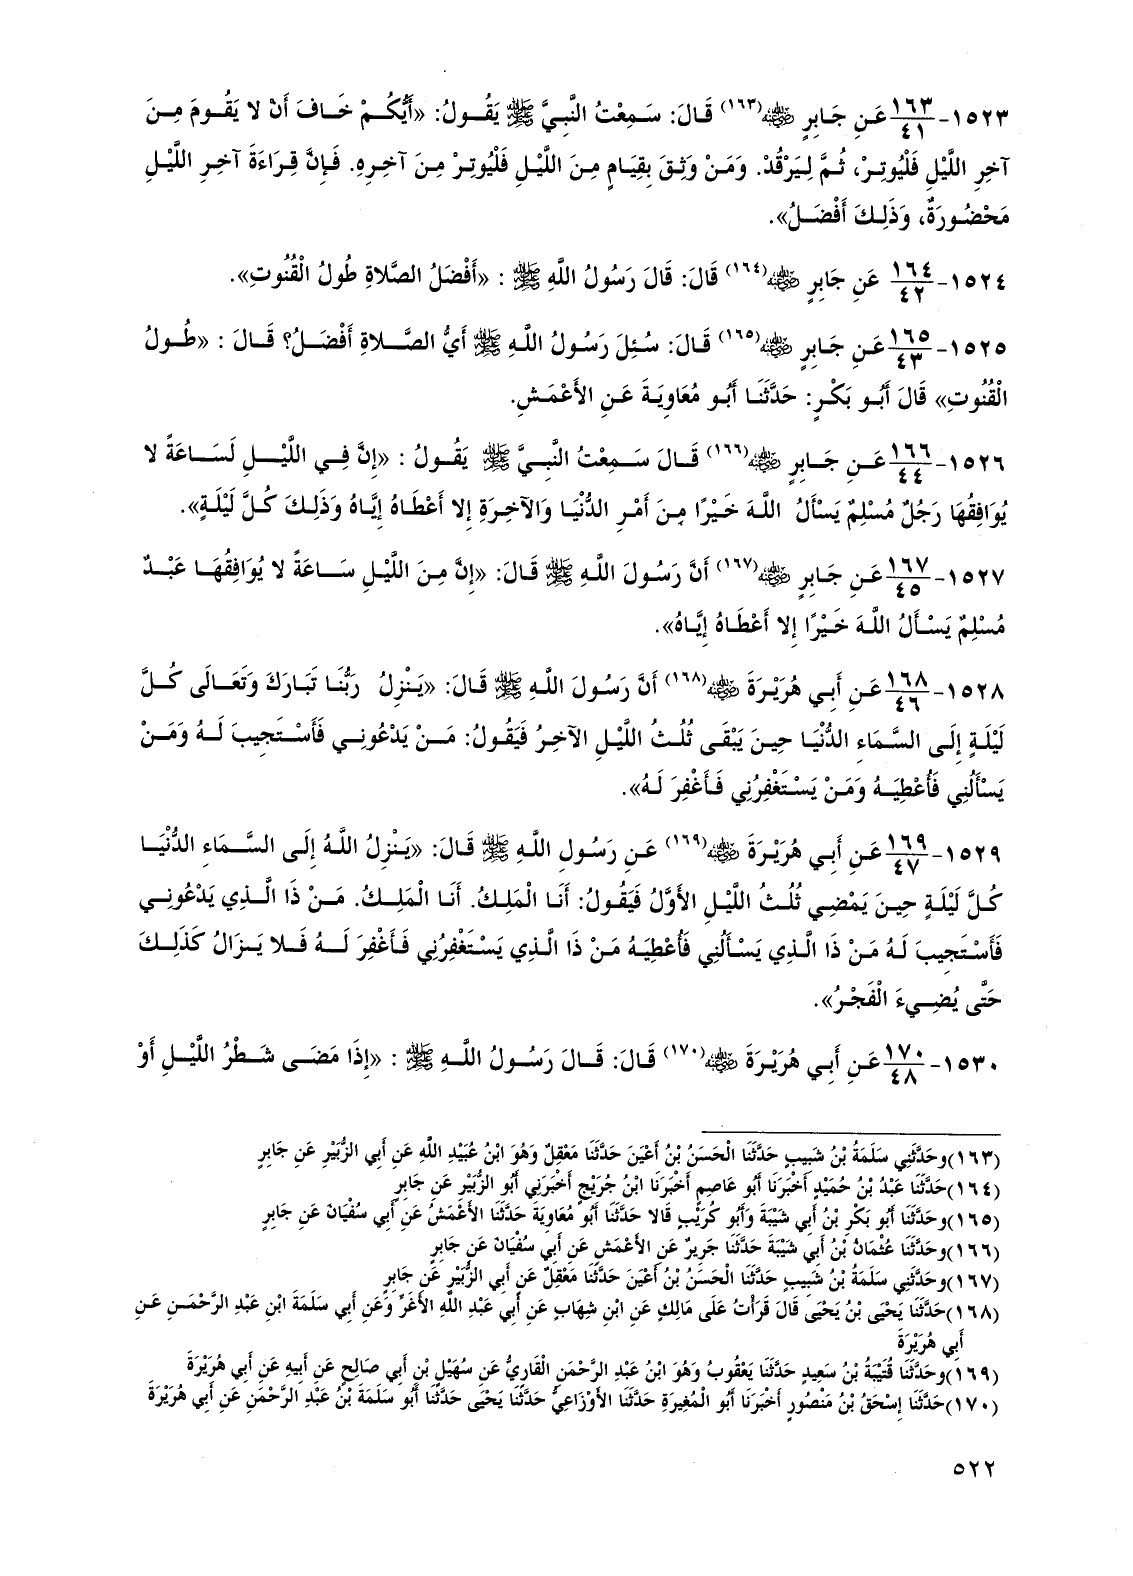 ١٥٢٣- ١٦٣/٤١ عَنِ جَابِرٍ ﵁(١٦٣) قَالَ: سَمِعْتُ النَّبِيَّ ﷺ يَقُولُ: «أَيُّكُمْ خَافَ أَنْ لا يَقُومَ مِنَ
آخِرِ اللَّيْلِ فَلْيُوتِرْ، ثُمَّ لِيَرْقُدْ. وَمَنْ وَثِقَ بِقِيَامٍ مِنَ اللَّيْلِ فَلْيُوتِرْ مِنَ آخِرِهِ. فَإِنَّ قِرَاءَةَ آخِرِ اللَّيْلِ
مَحْضُورَةٌ، وَذَلِكَ أَفْضَلُ».
١٥٢٤- ١٦٤/٤٢ عَنِ جَابِرٍ ﵁(١٦٤) قَالَ: قَالَ رَسُولُ اللَّهِ ﷺ : «أَفْضَلُ الصَّلاةِ طُولُ الْقُنُوتِ».
١٥٢٥- ١٦٥/٤٣ عَنِ جَابِرٍ ﵁(١٦٥) قَالَ: سُئِلَ رَسُولُ اللَّهِ ﷺ أَيُّ الصَّلاةِ أَفْضَلُ؟ قَالَ : «طُولُ
الْقُنُوتِ» قَالَ أَبُو بَكْرٍ: حَدَّثَنَا أَبُو مُعَاوِيَةَ عَنِ الأَعْمَشِ.
١٥٢٦- ١٦٦/٤٤ عَنِ جَابِرٍ ﵁(١٦٦) قَالَ سَمِعْتُ النَّبِيَّ ﷺ يَقُولُ : «إِنَّ فِي اللَّيْلِ لَسَاعَةً لا
يُوَافِقُهَا رَجُلٌ مُسْلِمٌ يَسْأَلُ اللَّهَ خَيْرًا مِنَ أَمْرِ الدُّنْيَا وَالآخِرَةِ إِلا أَعْطَاهُ إِيَّاهُ وَذَلِكَ كُلَّ لَيْلَةٍ».
١٥٢٧- ١٦٧/٤٥ عَنِ جَابِرٍ ﵁(١٦٧) أَنَّ رَسُولَ اللَّهِ ﷺ قَالَ: «إِنَّ مِنَ اللَّيْلِ سَاعَةً لا يُوَافِقُهَا عَبْدٌ
مُسْلِمٌ يَسْأَلُ اللَّهَ خَيْرًا إِلا أَعْطَاهُ إِيَّاهُ».
١٥٢٨- ١٦٨/٤٦ عَنِ أَبِي هُرَيْرَةَ ﵁(١٦٨) أَنَّ رَسُولَ اللَّهِ ﷺ قَالَ: «يَنْزِلُ رَبُّنَا تَبَارَكَ وَتَعَالَى كُلَّ
لَيْلَةٍ إِلَى السَّمَاءِ الدُّنْيَا حِينَ يَبْقَى ثُلُثُ اللَّيْلِ الآخِرُ فَيَقُولُ: مَنْ يَدْعُونِي فَأَسْتَجِيبَ لَهُ وَمَنْ
يَسْأَلُنِي فَأُعْطِيَهُ وَمَنْ يَسْتَغْفِرُنِي فَأَغْفِرَ لَهُ».
١٥٢٩- ١٦٩/٤٧ عَنِ أَبِي هُرَيْرَةَ ﵁(١٦٩) عَنِ رَسُولِ اللَّهِ ﷺ قَالَ: «يَنْزِلُ اللَّهُ إِلَى السَّمَاءِ الدُّنْيَا
كُلَّ لَيْلَةٍ حِينَ يَمْضِي ثُلُثُ اللَّيْلِ الأَوَّلُ فَيَقُولُ: أَنَا الْمَلِكُ. أَنَا الْمَلِكُ. مَنْ ذَا الَّذِي يَدْعُونِي
فَأَسْتَجِيبَ لَهُ مَنْ ذَا الَّذِي يَسْأَلُنِي فَأُعْطِيَهُ مَنْ ذَا الَّذِي يَسْتَغْفِرُنِي فَأَغْفِرَ لَهُ فَلا يَزَالُ كَذَلِكَ
حَتَّى يُضِيءَ الْفَجْرُ».
١٥٣٠- ١٧٠/٤٨ عَنِ أَبِي هُرَيْرَةَ ﵁(١٧٠) قَالَ: قَالَ رَسُولُ اللَّهِ ﷺ : «إِذَا مَضَى شَطْرُ اللَّيْلِ أَوْ
(١٦٣)وحَدَّثَنِي سَلَمَةُ بْنُ شَبِيبٍ حَدَّثَنَا الْحَسَنُ بْنُ أَعْيَنَ حَدَّثَنَا مَعْقِلٌ وَهُوَ ابْنُ عُبَيْدِ اللَّهِ عَنِ أَبِي الزُّبَيْرِ عَنِ جَابِرٍ
(١٦٤)حَدَّثَنَا عَبْدُ بْنُ حُمَيْدٍ أَخْبَرَنَا أَبُو عَاصِمٍ أَخْبَرَنَا ابْنُ جُرَيْجٍ أَخْبَرَنِي أَبُو الزُّبَيْرِ عَنِ جَابِرٍ
(١٦٥)وحَدَّثَنَا أَبُو بَكْرِ بْنُ أَبِي شَيْبَةَ وَأَبُو كُرَيْبٍ قَالا حَدَّثَنَا أَبُو مُعَاوِيَةَ حَدَّثَنَا الأَعْمَشُ عَنِ أَبِي سُفْيَانَ عَنِ جَابِرٍ
(١٦٦)وحَدَّثَنَا عُثْمَانُ بْنُ أَبِي شَيْبَةَ حَدَّثَنَا جَرِيرٌ عَنِ الأَعْمَشِ عَنِ أَبِي سُفْيَانَ عَنِ جَابِرٍ
(١٦٧)وحَدَّثَنِي سَلَمَةُ بْنُ شَبِيبٍ حَدَّثَنَا الْحَسَنُ بْنُ أَعْيَنَ حَدَّثَنَا مَعْقِلٌ عَنِ أَبِي الزُّبَيْرِ عَنِ جَابِرٍ
(١٦٨)حَدَّثَنَا يَحْيَى بْنُ يَحْيَى قَالَ قَرَأْتُ عَلَى مَالِكٍ عَنِ ابْنِ شِهَابٍ عَنِ أَبِي عَبْدِ اللَّهِ الأَغَرِّ وَعَنِ أَبِي سَلَمَةَ ابْنِ عَبْدِ الرَّحْمَنِ عَنِ
أَبِي هُرَيْرَةَ
(١٦٩)وحَدَّثَنَا قُتَيْبَةُ بْنُ سَعِيدٍ حَدَّثَنَا يَعْقُوبُ وَهُوَ ابْنُ عَبْدِ الرَّحْمَنِ الْقَارِيُّ عَنِ سُهَيْلِ بْنِ أَبِي صَالِحٍ عَنِ أَبِيهِ عَنِ أَبِي هُرَيْرَةَ
(١٧٠)حَدَّثَنَا إِسْحَقُ بْنُ مَنْصُورٍ أَخْبَرَنَا أَبُو الْمُغِيرَةِ حَدَّثَنَا الأَوْزَاعِيُّ حَدَّثَنَا يَحْيَى حَدَّثَنَا أَبُو سَلَمَةَ بْنُ عَبْدِ الرَّحْمَنِ عَنِ أَبِي هُرَيْرَةَ
٥٢٢